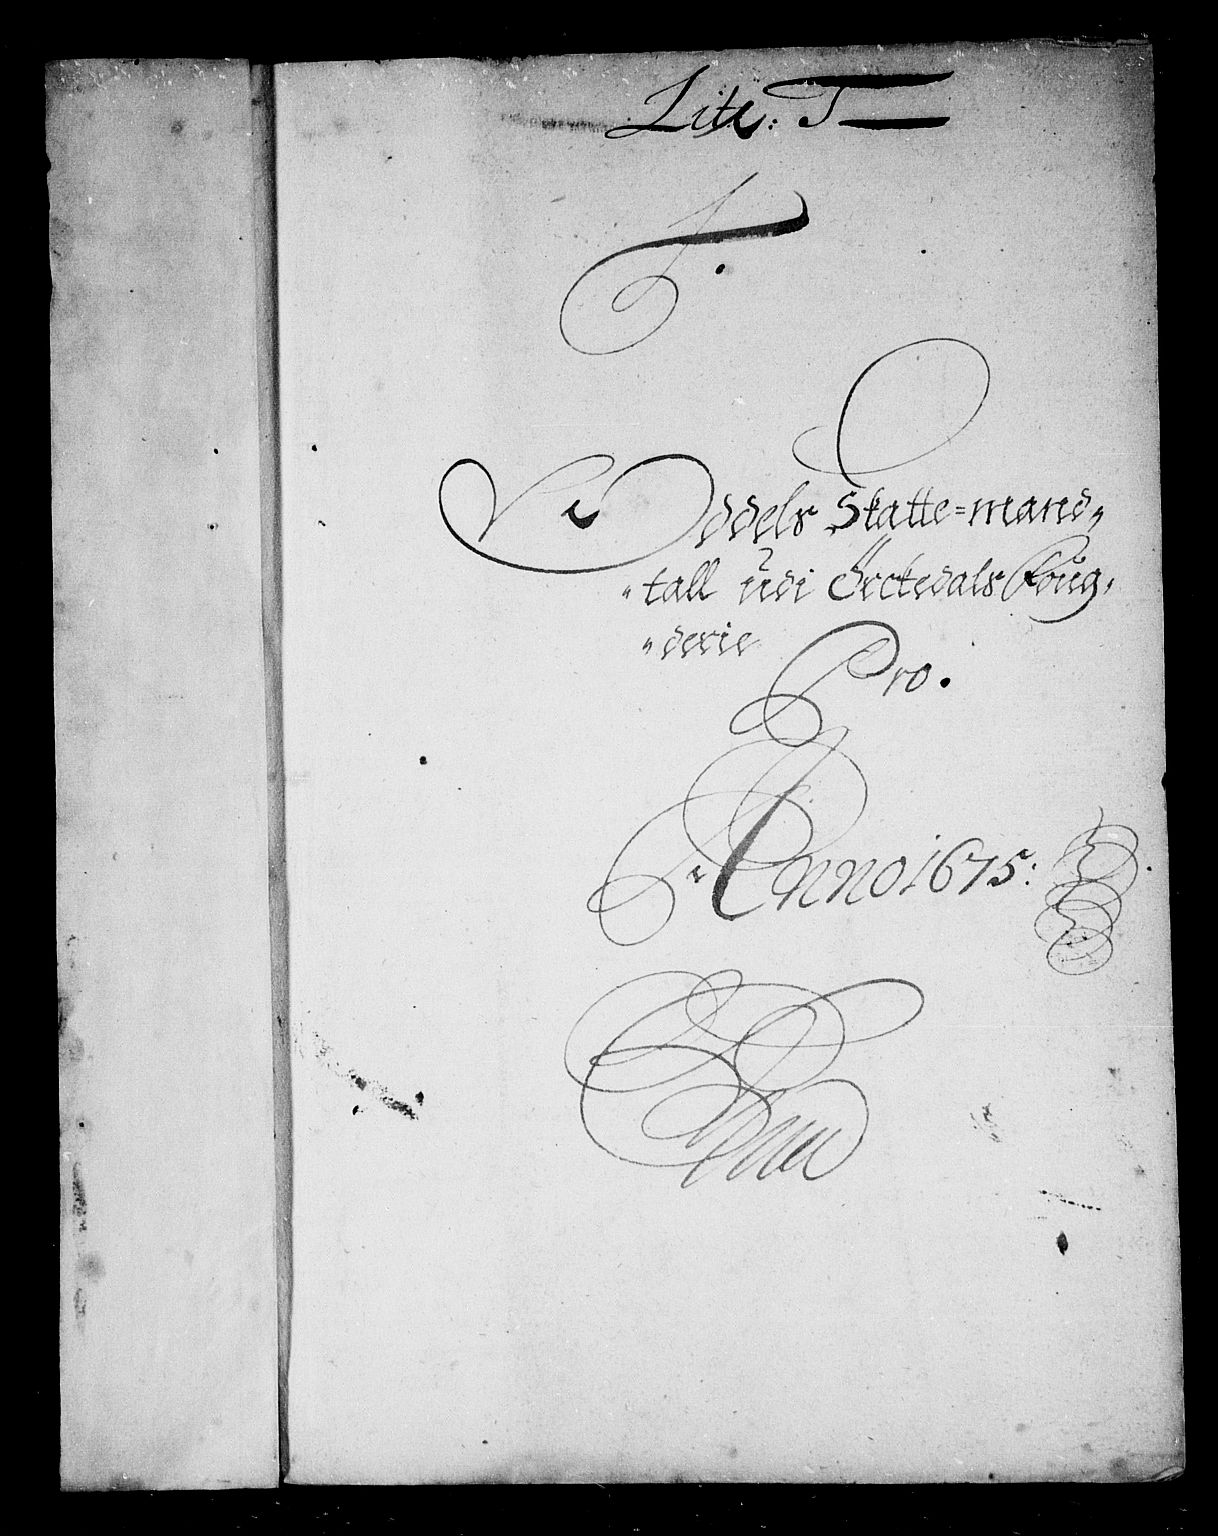 Litr: T
Oddels Skatte=mand„
„tall udi Örckedals Foug„
„derie
Pro.
Anno 1675: